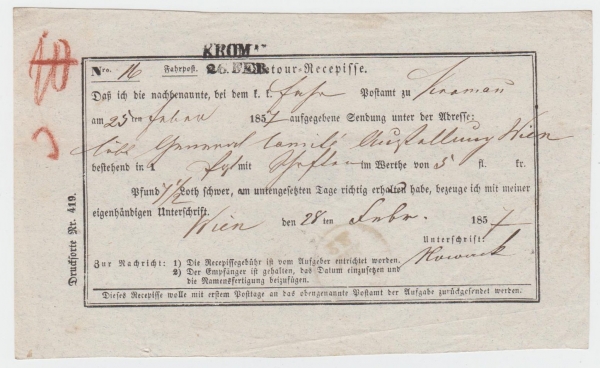 40
KROMA
26. FEB.
Nro. 16 Fahrpost. Retour-Recepisse.
Daß ich die nachbenannte, bei dem k. k. Fahr Postamt zu Kromau
am 25ten Feber 1857 aufgegebene Sendung unter der Adresse:
General Comité Ausstellung Wien
bestehend in 1 mit im Werthe von 5 fl. kr.
Pfund 7 1/2 Loth schwer, am untengesetzten Tage richtig erhalten habe, bezeuge ich mit meiner
eigenhändigen Unterschrift.
Wien den 28ten Febr. 1857
Unterschrift:
Nowack
Zur Nachricht: 1) Die Recepissegebühr ist vom Aufgeber entrichtet worden.
2) Der Empfänger ist gehalten, das Datum einzusetzen und
die Namensfertigung beizufügen.
Dieses Recepisse wolle mit erstem Posttage an das obengenannte Postamt der Aufgabe zurückgesendet werden.
Drucksorte Nr. 419.